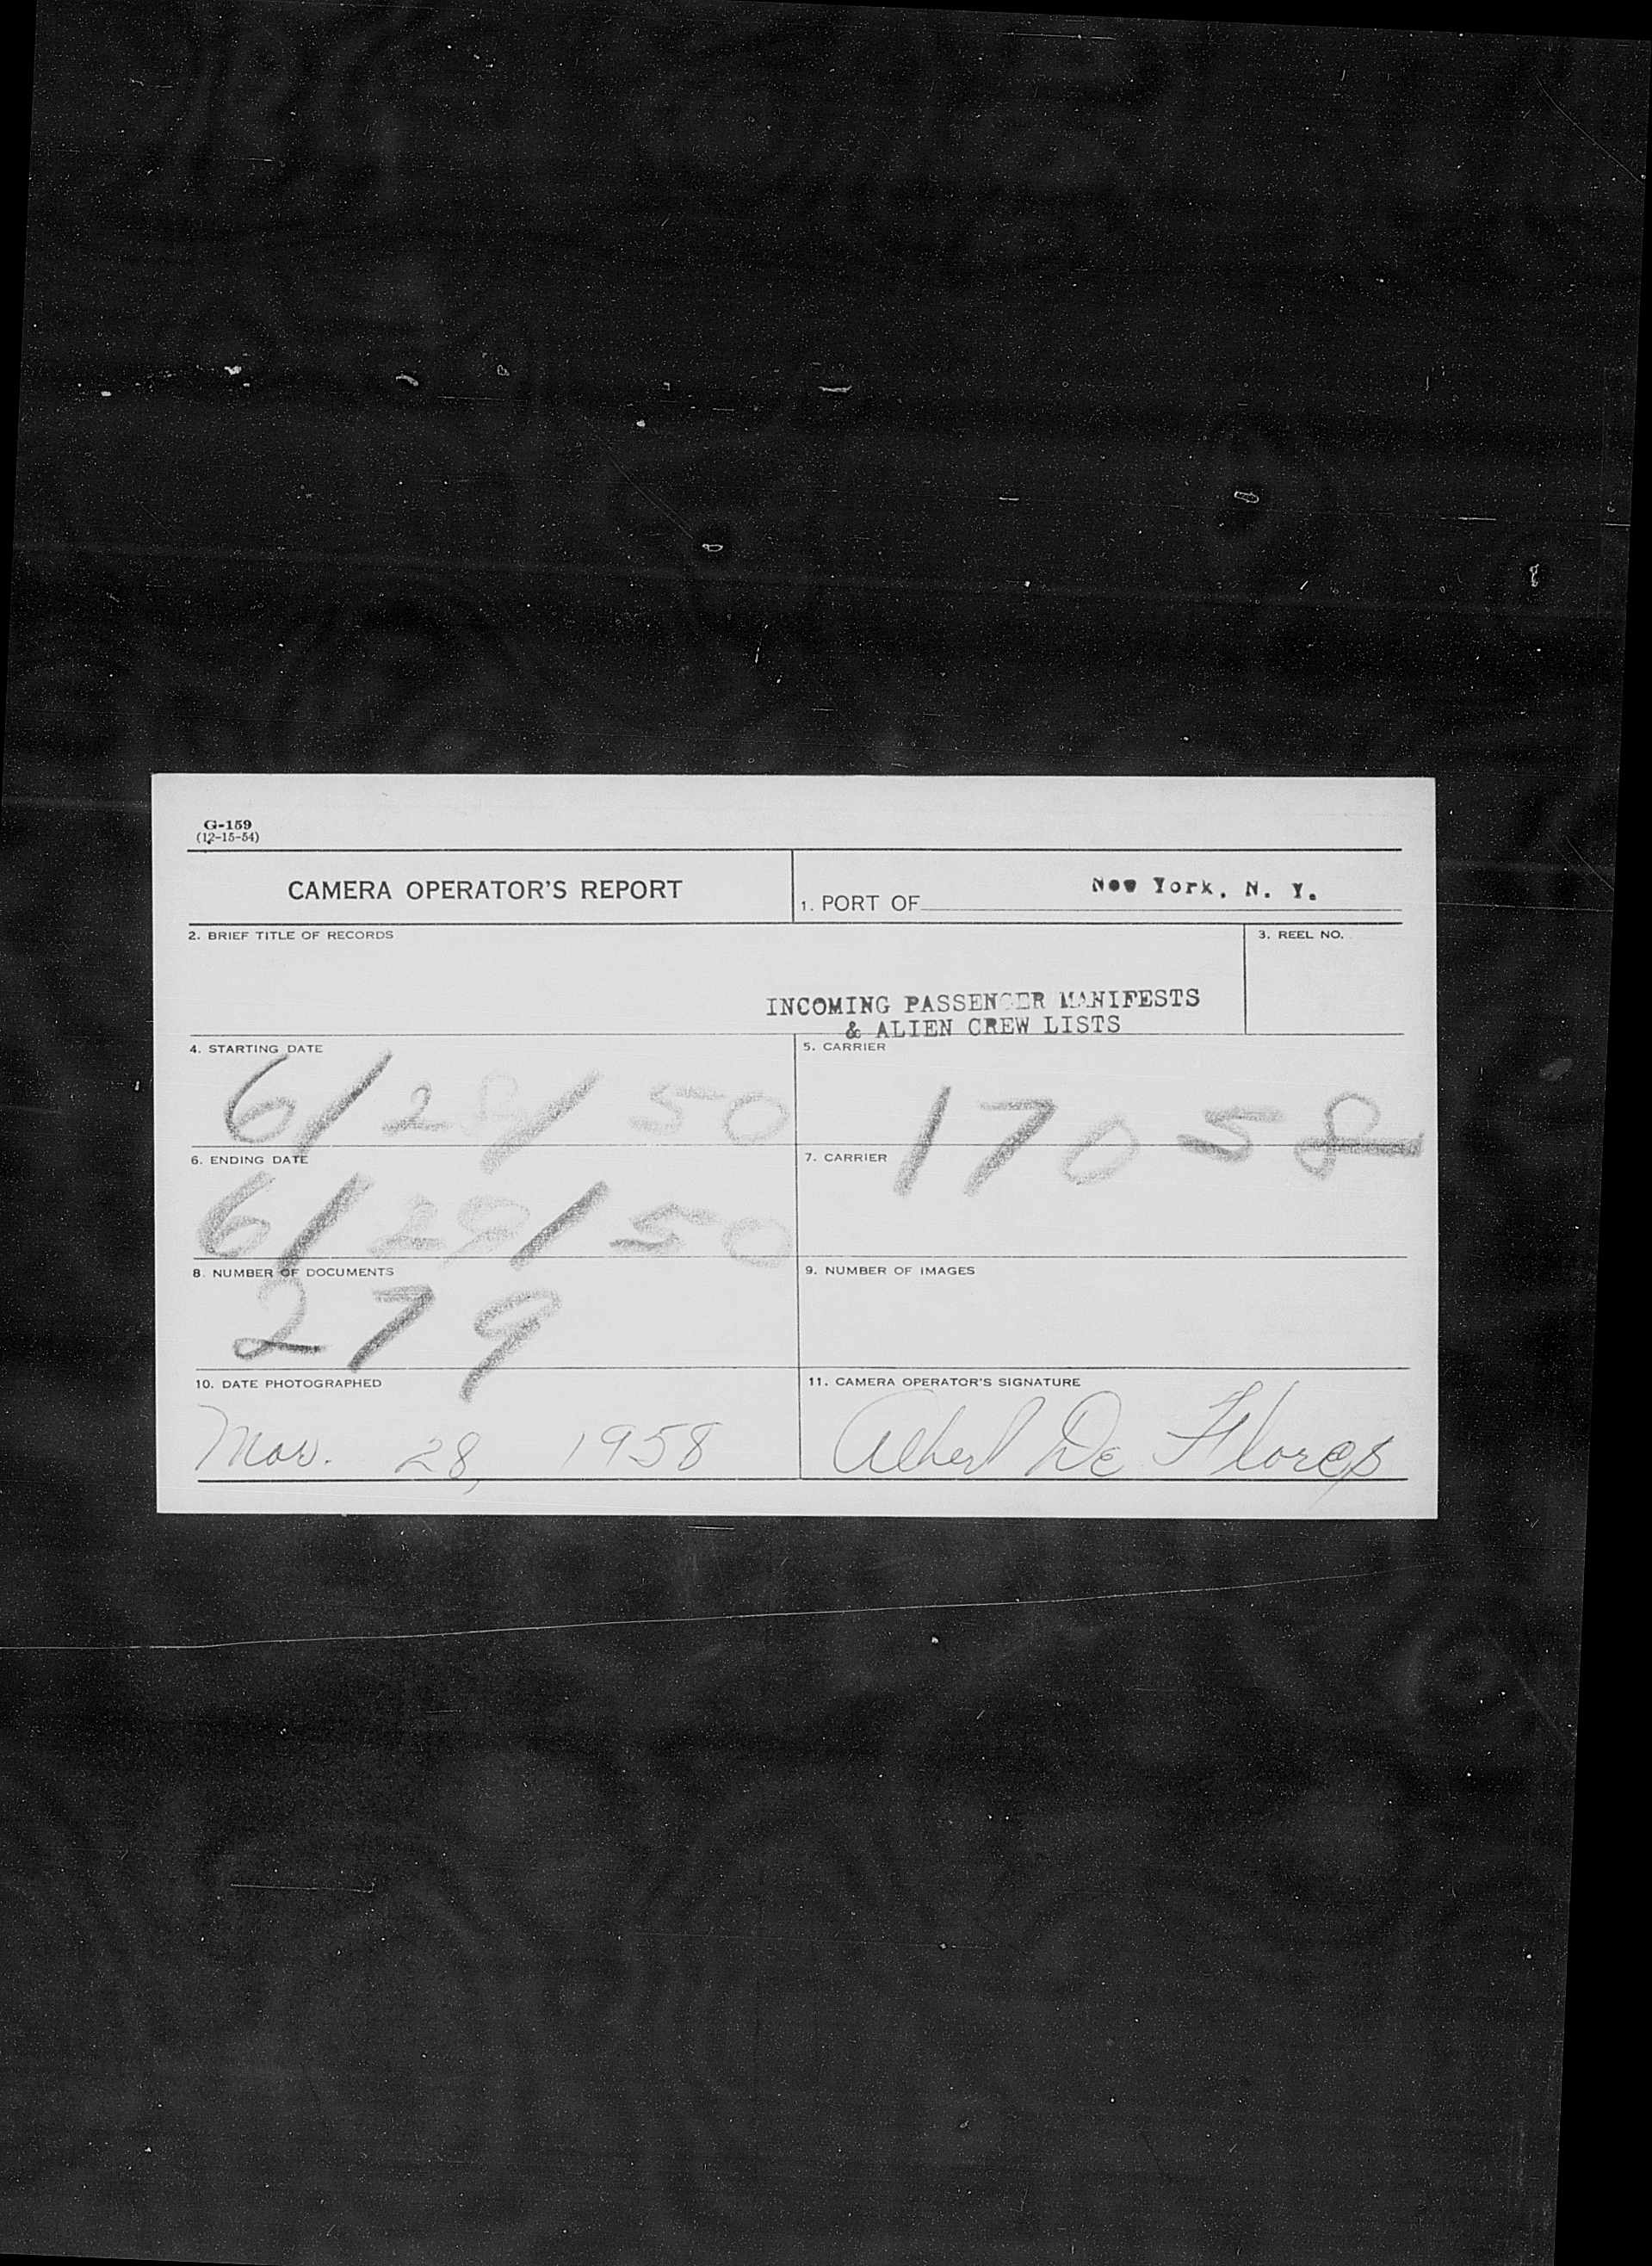 G-159
(12-15-54)
CAMERA OPERATOR'S REPORT
1. PORT OF New York, N. Y.
2. BRIEF TITLE OF RECORDS
3. REEL NO.
INCOMING PASSENGER MANIFESTS
& ALIEN CREW LISTS
4. STARTING DATE
6/28/50
5. CARRIER
17058
6. ENDING DATE
6/29/50
7. CARRIER
8. NUMBER OF DOCUMENTS
279
9. NUMBER OF IMAGES
10. DATE PHOTOGRAPHED
Mar. 28, 1958
11. CAMERA OPERATOR'S SIGNATURE
Albert De Flores